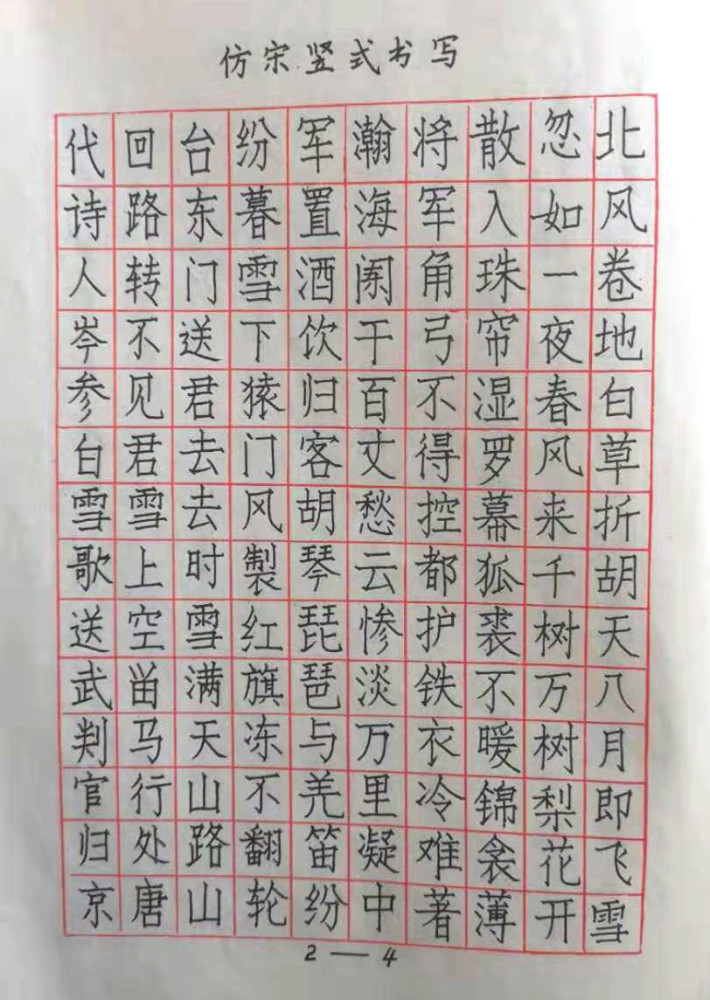 仿宋竖式书写
北风卷地白草折胡天八月即飞雪
忽如一夜春风来千树万树梨花开
散入珠帘湿罗幕狐裘不暖锦衾薄
将军角弓不得控都护铁衣冷难著
瀚海阑干百丈愁云惨淡万里凝中
军置酒饮归客胡琴琵琶与羌笛纷
纷暮雪下猿门风製红旗冻不翻轮
台东门送君去去时雪满天山路山
回路转不见君雪上空畄马行处唐
代诗人岑参白雪歌送武判官归京
2—4